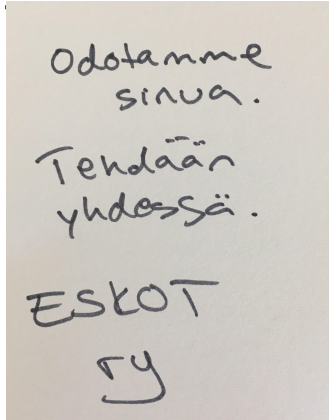 Odotamme
sinua.
Tehdään
yhdessä.
ESKOT
ry